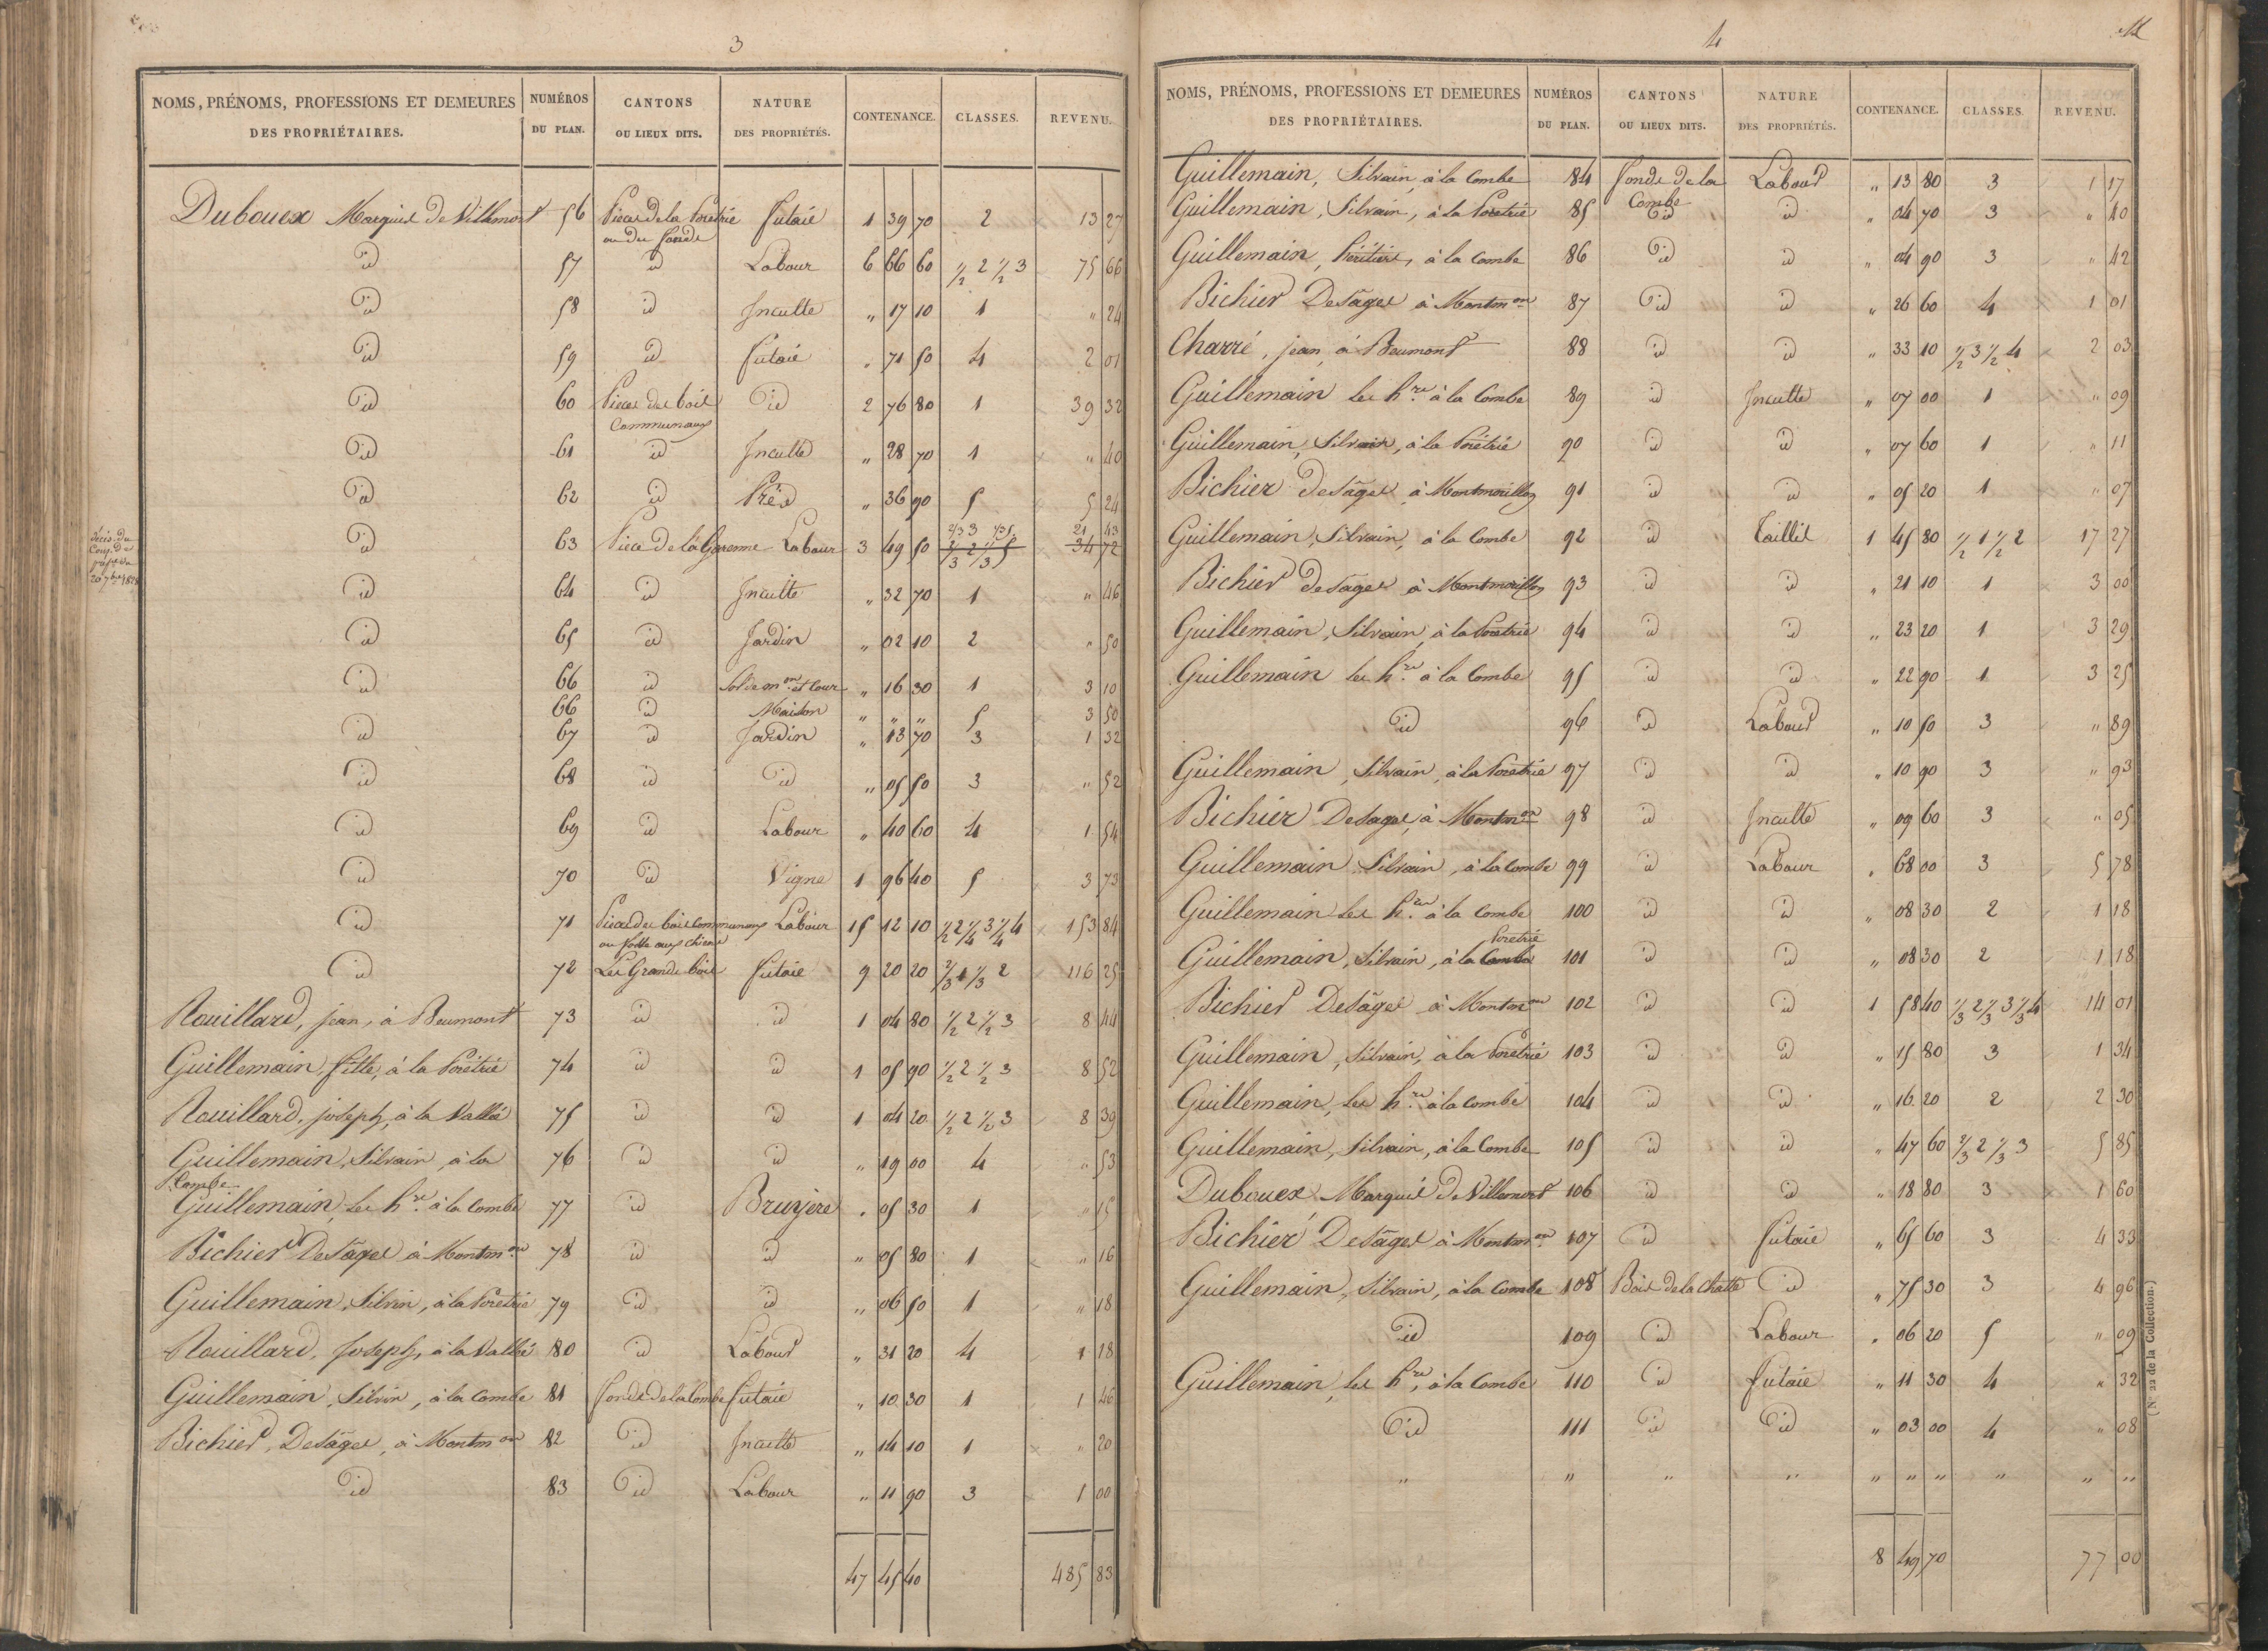 3
NOMS, PRÉNOMS, PROFESSIONS ET DEMEURES DES PROPRIÉTAIRES. NUMÉROS DU PLAN. CANTONS OU LIEUX DITS. NATURE DES PROPRIÉTÉS. CONTENANCE. CLASSES. REVENU.
Dubouex Marquis De Villemort 56 Pieces de la Poretrie ou des fonds futaie 1 39 70 2 13 27
id 57 id Labour 6 66 60 1/2 2 1/2 3 75 66
id 58 id Inculte " 17 10 1 " 24
id 59 id futaie " 71 50 4 2 01
id 60 Pieces des bois Communaux id 2 76 80 1 39 32
id 61 id Inculte " 28 70 1 " 40
id 62 id Prés " 36 90 5 5 24
id 63 Piece de la Garenne Labour 3 49 50 2/3 3 1/3 5 21 43
2/3 2 1/3 5 34 72
id 64 id Inculte " 32 70 1 " 46
id 65 id Jardin " 02 10 2 " 50
id 66 id Sol de mon et Cour " 16 30 1 3 10
66 id Maison " " " 5 3 50
id 67 id Jardin " 13 70 3 1 32
id 68 id id " 05 50 3 " 52
id 69 id Labour " 40 60 4 1 54
id 70 id Vigne 1 96 40 5 3 73
id 71 Pieces des bois Communaux ou fosse aux chiens Labour 15 12 10 1/2 2 1/4 3 1/4 4 153 84
id 72 Les Grands bois futaie 9 20 20 2/3 1 1/3 2 116 25
Rouillard, jean, à Beumont 73 id id 1 04 80 1/2 2 1/2 3 8 44
Guillemain, fille, à la Porétrie 74 id id 1 05 90 1/2 2 1/2 3 8 52
Rouillard, joseph, à la Vallée 75 id id 1 04 20 1/2 2 1/2 3 8 39
Guillemain, Silvain, à la Combe 76 id id " 19 00 4 " 53
Guillemain, les hrs à la Combe 77 id Bruyere " 05 30 1 " 15
Bichier Desâges à Montmon 78 id id " 05 80 1 " 16
Guillemain, Silvin, à la Poretrie 79 id id " 06 50 1 " 18
Rouillard, Joseph, à la Vallée 80 id Labour " 31 20 4 1 18
Guillemain, Silvin, à la Combe 81 fonds de la Combe futaie " 10 30 1 1 46
Bichier, Desâges, à Montmon 82 id Inculte " 14 10 1 " 20
id 83 id Labour " 11 90 3 1 00
47 45 40 485 83
4
NOMS, PRÉNOMS, PROFESSIONS ET DEMEURES DES PROPRIÉTAIRES. NUMÉROS DU PLAN. CANTONS OU LIEUX DITS. NATURE DES PROPRIÉTÉS. CONTENANCE. CLASSES. REVENU.
Guillemain, Silvain, à la Combe 84 fonds de la Combe Labour " 13 80 3 1 17
Guillemain, Silvain, à la Poretrie 85 id id " 04 70 3 " 40
Guillemain, héritiers, à la Combe 86 id id " 04 90 3 " 42
Bichier Desâges à Montmon 87 id id " 26 60 4 1 01
Charré, jean, à Beumont 88 id id " 33 10 1/2 3 1/2 4 2 03
Guillemain les hrs à la Combe 89 id Inculte " 07 00 1 " 09
Guillemain, Silvain, à la Porétrie 90 id id " 07 60 1 " 11
Bichier Desâges à Montmorillon 91 id id " 05 20 1 " 07
Guillemain, Silvain, à la Combe 92 id Taillis 1 45 80 1/2 1 1/2 2 17 27
Bichier Desages à Montmorillon 93 id id " 21 10 1 3 00
Guillemain, Silvain, à la Poretrie 94 id id " 23 20 1 3 29
Guillemain les hrs à la Combe 95 id id " 22 90 1 3 25
id 96 id Labour " 10 50 3 " 89
Guillemain, Silvain, à la Poretrie 97 id id " 10 90 3 " 93
Bichier Desages, à Montmon 98 id Inculte " 09 60 3 " 05
Guillemain Silvain, à la Combe 99 id Labour " 68 00 3 5 78
Guillemain les hrs à la Combe 100 id id " 08 30 2 1 18
Guillemain, Silvain, à la Combe Poretrie 101 id id " 08 30 2 1 18
Bichier Desâges à Montmon 102 id id 1 58 40 1/3 2 1/3 3 1/3 4 14 01
Guillemain, Silvain, à la Poretrie 103 id id " 15 80 3 1 34
Guillemain, les hrs à la Combe 104 id id " 16 20 2 2 30
Guillemain, Silvain, à la Combe 105 id id " 47 60 2/3 2 1/3 3 5 85
Dubouex, Marquis De Villemort 106 id id " 18 80 3 1 60
Bichier Desâges à Montmon 107 id futaie " 65 60 3 4 33
Guillemain, Silvain, à la Combe 108 Bois de la Chatte id " 75 30 3 4 96
id 109 id Labour " 06 20 5 " 09
Guillemain, les hrs, à la Combe 110 id futaie " 11 30 4 " 32
id 111 id id " 03 00 4 " 08
" " " " " " " " " "
8 49 70 77 00
(N° 22 de la Collection.)